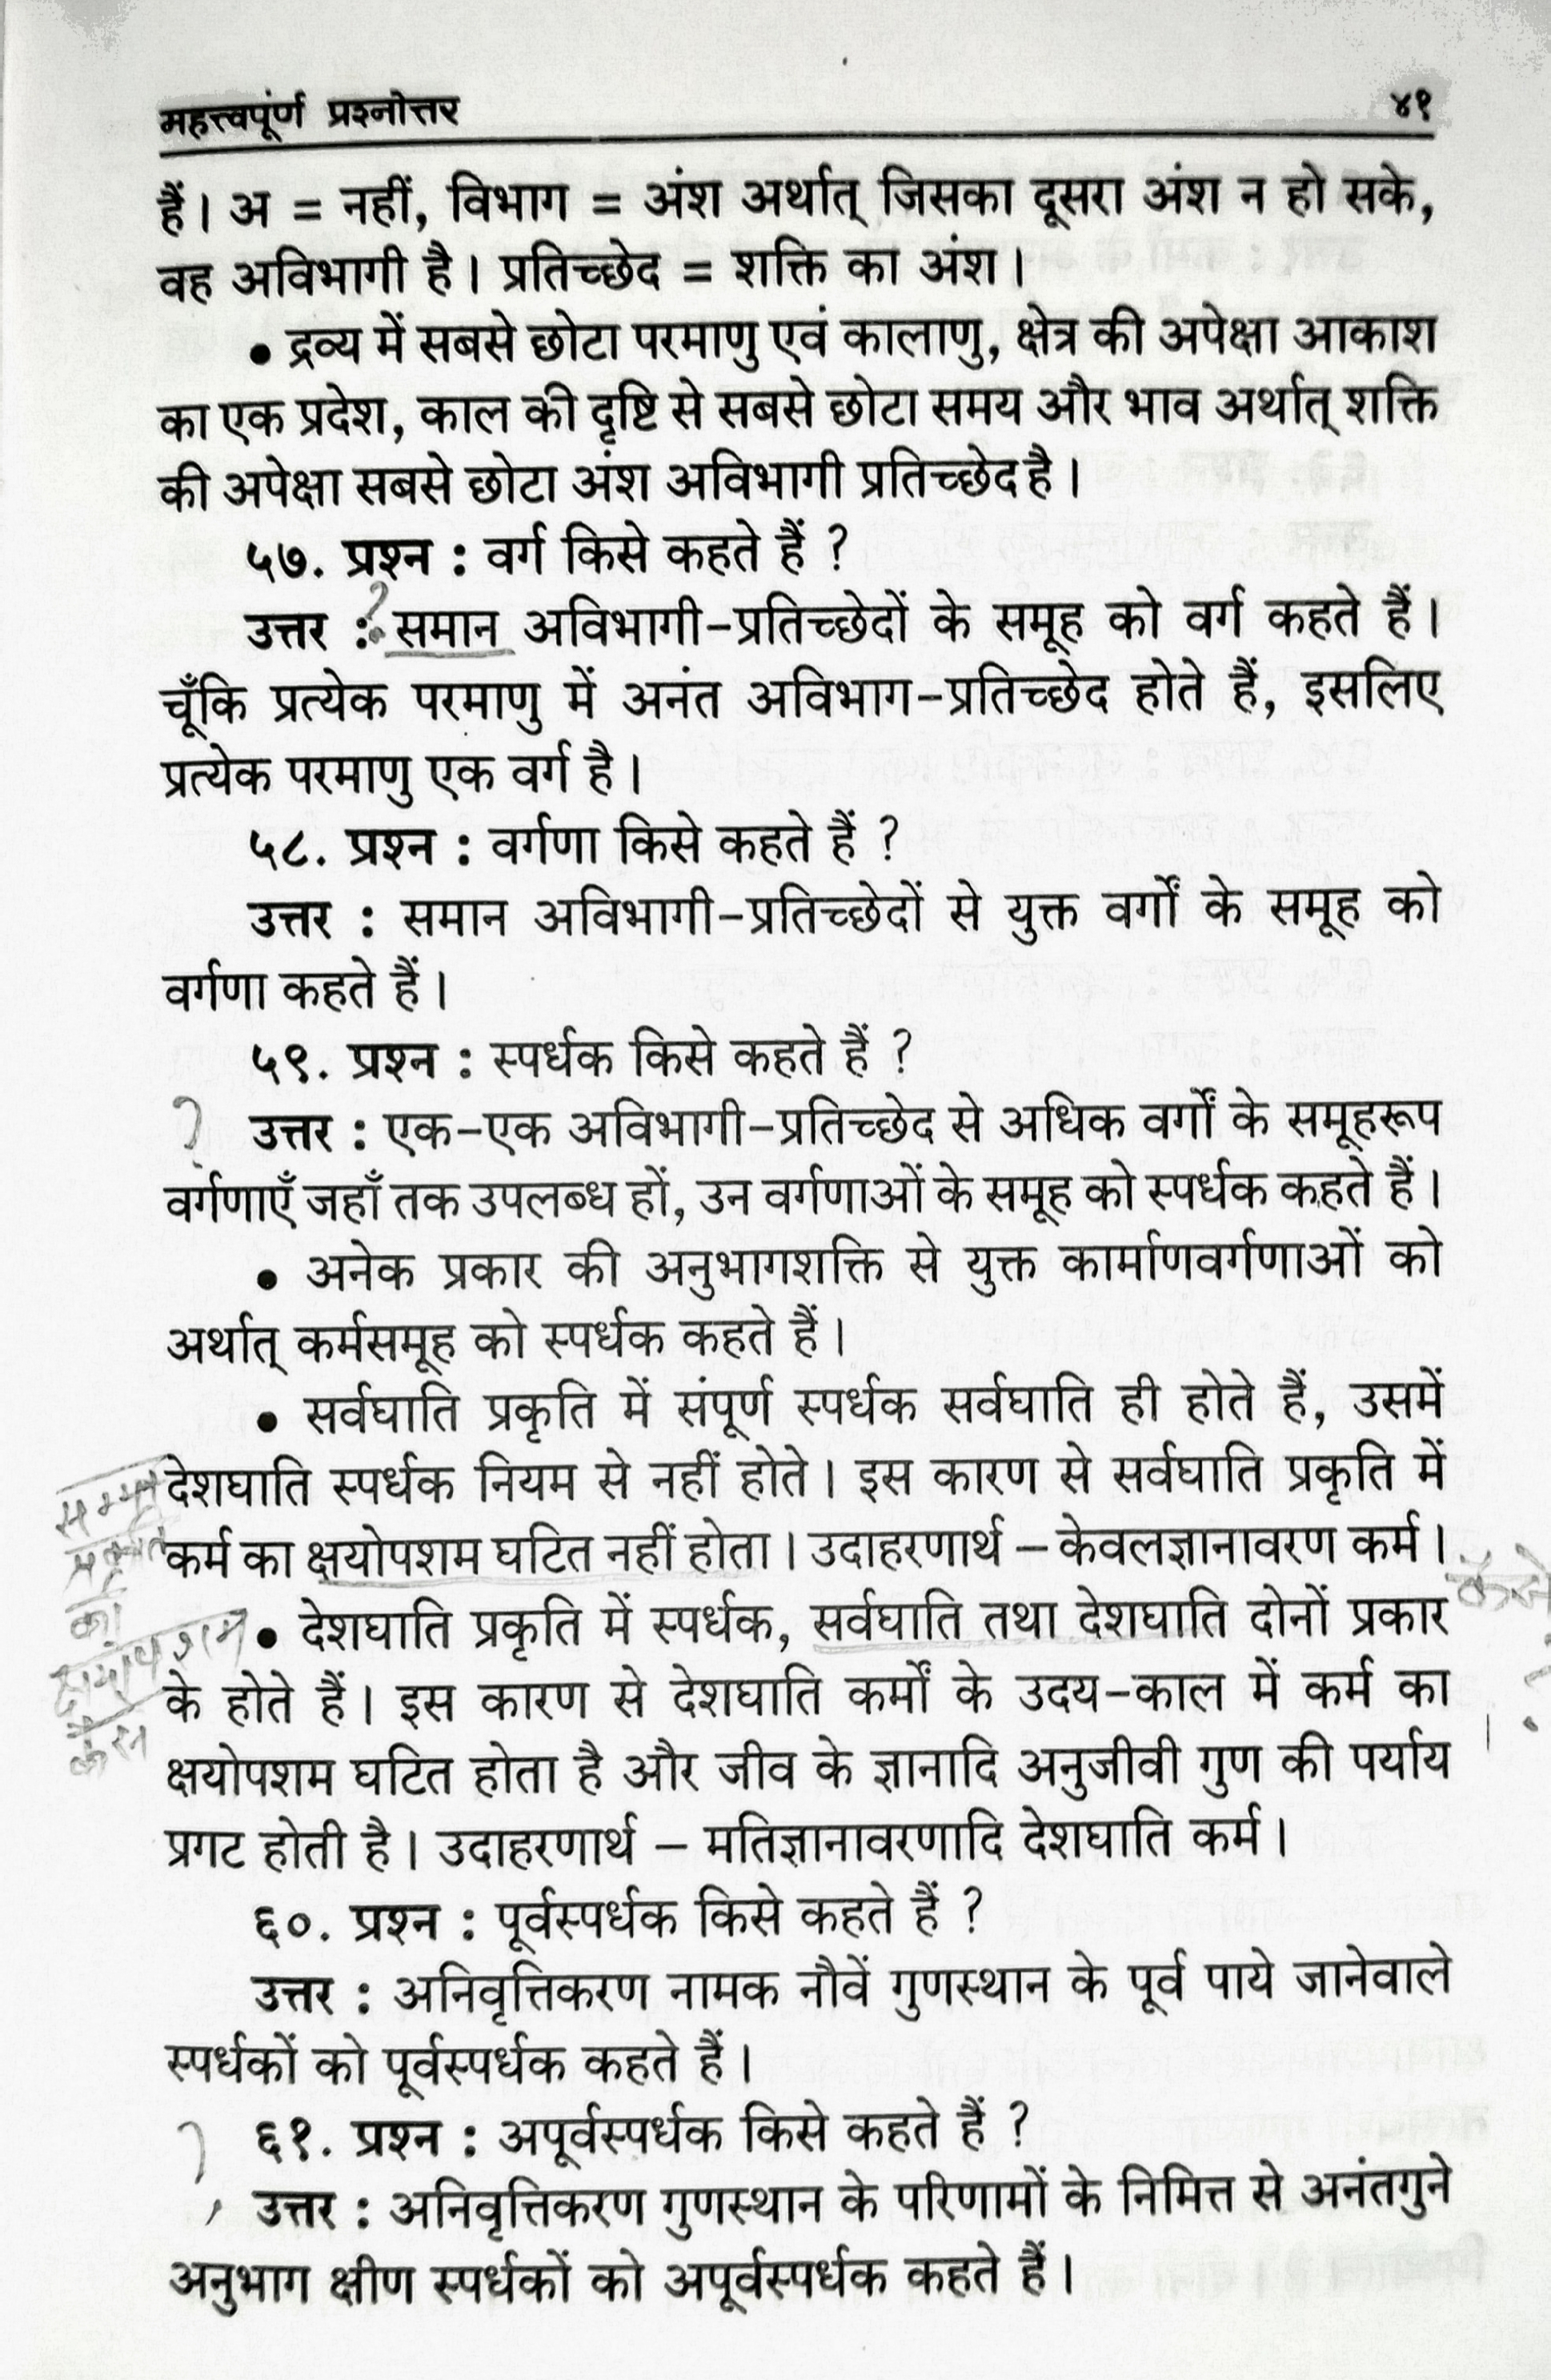 महत्त्वपूंर्ण प्रश्नोत्तर ४१
हैं। अ = नहीं, विभाग = अंश अर्थात् जिसका दूसरा अंश न हो सके,
वह अविभागी है। प्रतिच्छेद = शक्ति का अंश।
• द्रव्य में सबसे छोटा परमाणु एवं कालाणु, क्षेत्र की अपेक्षा आकाश
का एक प्रदेश, काल की दृष्टि से सबसे छोटा समय और भाव अर्थात् शक्ति
की अपेक्षा सबसे छोटा अंश अविभागी प्रतिच्छेद है।
५७. प्रश्न : वर्ग किसे कहते हैं ?
उत्तर : ? समान अविभागी-प्रतिच्छेदों के समूह को वर्ग कहते हैं।
चूँकि प्रत्येक परमाणु में अनंत अविभाग-प्रतिच्छेद होते हैं, इसलिए
प्रत्येक परमाणु एक वर्ग है।
५८. प्रश्न : वर्गणा किसे कहते हैं ?
उत्तर : समान अविभागी-प्रतिच्छेदों से युक्त वर्गों के समूह को
वर्गणा कहते हैं।
५९. प्रश्न : स्पर्धक किसे कहते हैं ?
? उत्तर : एक-एक अविभागी-प्रतिच्छेद से अधिक वर्गों के समूहरूप
वर्गणाएँ जहाँ तक उपलब्ध हों, उन वर्गणाओं के समूह को स्पर्धक कहते हैं।
• अनेक प्रकार की अनुभागशक्ति से युक्त कार्माणवर्गणाओं को
अर्थात् कर्मसमूह को स्पर्धक कहते हैं।
• सर्वघाति प्रकृति में संपूर्ण स्पर्धक सर्वघाति ही होते हैं, उसमें
देशघाति स्पर्धक नियम से नहीं होते। इस कारण से सर्वघाति प्रकृति में
कर्म का क्षयोपशम घटित नहीं होता। उदाहरणार्थ – केवलज्ञानावरण कर्म।
• देशघाति प्रकृति में स्पर्धक, सर्वघाति तथा देशघाति दोनों प्रकार
के होते हैं। इस कारण से देशघाति कर्मों के उदय-काल में कर्म का
क्षयोपशम घटित होता है और जीव के ज्ञानादि अनुजीवी गुण की पर्याय
प्रगट होती है। उदाहरणार्थ – मतिज्ञानावरणादि देशघाति कर्म।
६०. प्रश्न : पूर्वस्पर्धक किसे कहते हैं ?
उत्तर : अनिवृत्तिकरण नामक नौवें गुणस्थान के पूर्व पाये जानेवाले
स्पर्धकों को पूर्वस्पर्धक कहते हैं।
? ६१. प्रश्न : अपूर्वस्पर्धक किसे कहते हैं ?
उत्तर : अनिवृत्तिकरण गुणस्थान के परिणामों के निमित्त से अनंतगुने
अनुभाग क्षीण स्पर्धकों को अपूर्वस्पर्धक कहते हैं।
प्रकृति
का
क्षयोपशम